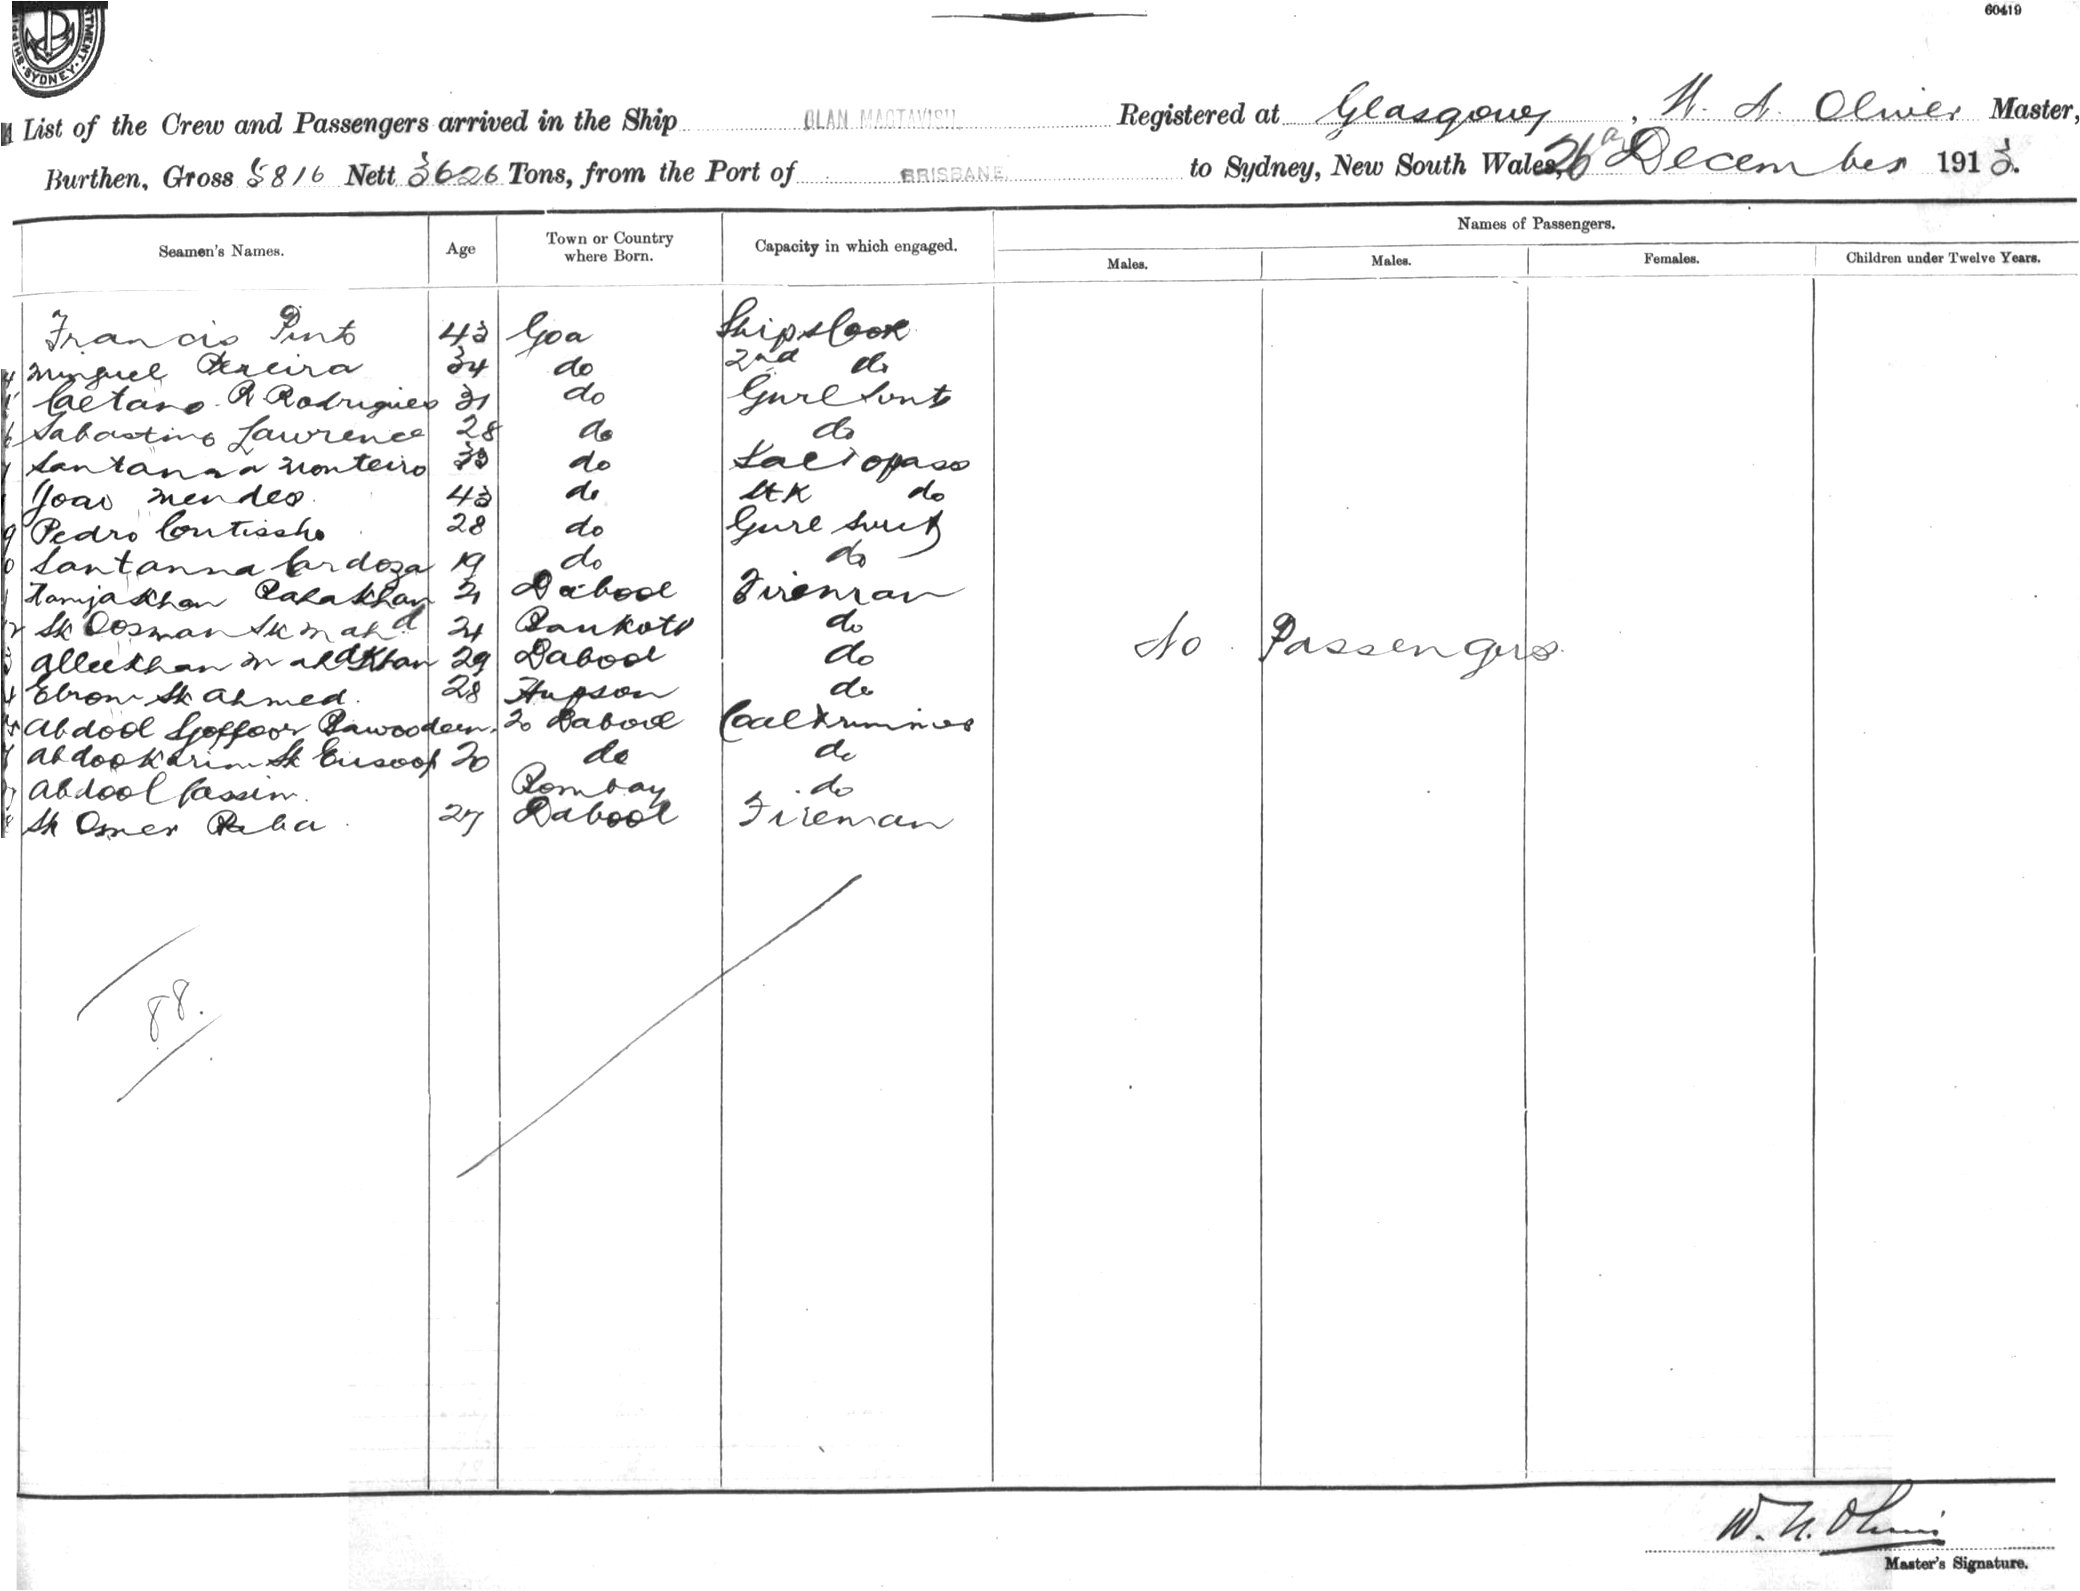 60419
SYDNEY
List of the Crew and Passengers arrived in the Ship CLAN MACTAVISH Registered at Glasgow, W. N. Oliver Master,
Burthen, Gross 5816 Nett 3626 Tons, from the Port of BRISBANE to Sydney, New South Wales, 26 December 1913.
Names of Passengers.
Seamen's Names. Age Town or Country where Born. Capacity in which engaged. Males. Males. Females. Children under Twelve Years.
Francis Pinto 43 Goa Ships Cook
Minguel Pereira 34 do 2nd do
Caetano R Rodrigues 31 do Genl Servt
Sabastino Lawrence 28 do do
Santanna Monteiro do
Joao Mendes 43 do do
Pedro Coutissho 28 do Genl Servt
Santanna Cardoza 19 do do
Hamjakhan Babakhan 21 Dabool Fireman
Sk Oosman Sk Mahd 24 Bankote do
No Passengers
Alleekhan Mahdkhan 29 Dabool do
Ebrom Sk Ahmed 28 do
Abdool Goffoor Dawoodeen 20 Dabool Coal Trimmer
Abdookarim Sk Eusoof 20 do do
Abdool Cassim Bombay do
Sk Omer Baba 27 Dabool Fireman
88.
W. N. Oliver
Master's Signature.